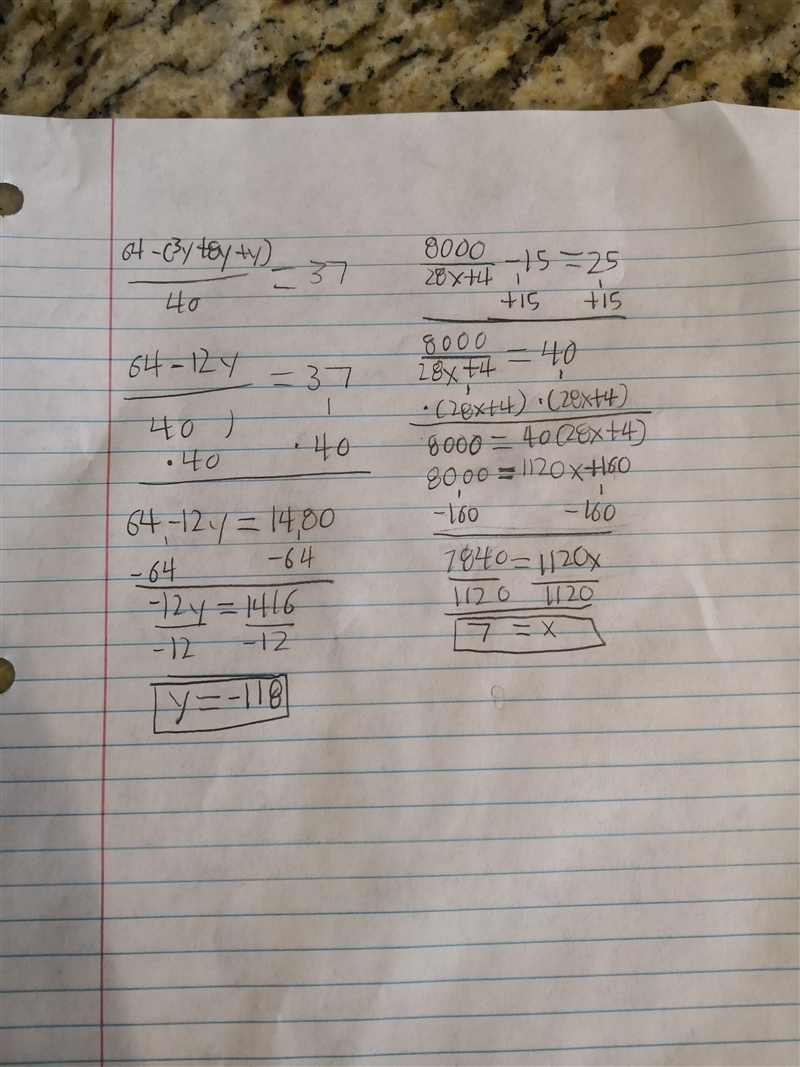 64-(3y+8y+y)
40
=37
64-12y
40
=37
·40 ·40
64-12y=1480
-64 -64
-12y=1416
-12 -12
y=-118
8000
28x+4
-15=25
+15 +15
8000
28x+4
=40
·(28x+4) ·(28x+4)
8000=40(28x+4)
8000=1120x+160
-160 -160
7840=1120x
1120 1120
7=x
8